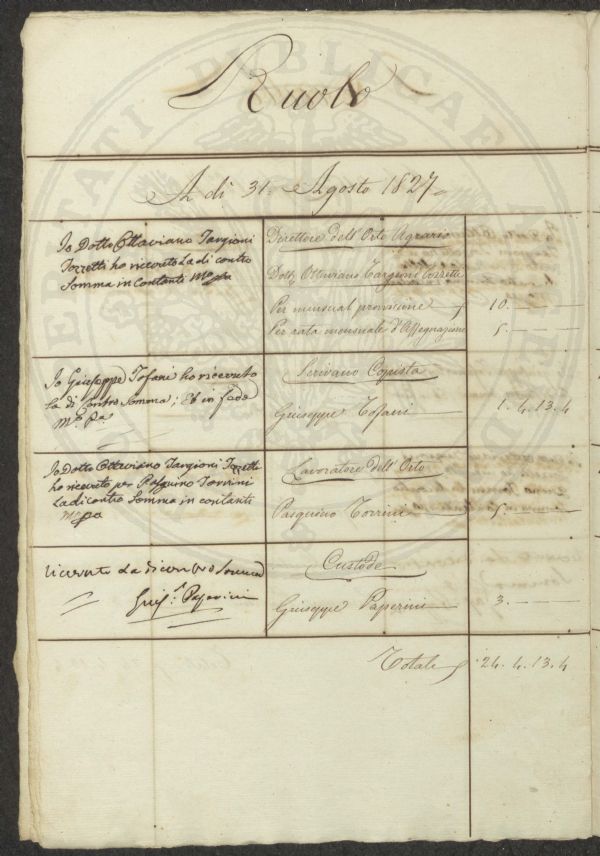 Ruolo
A dì 31. Agosto 1827.
Io Dottr Ottaviano Targioni
Tozzetti ho ricevuto La di contro
Somma in Contanti Mo pa
Direttore dell'Orto Agrario
Dottr Ottaviano Targioni Tozzetti
Per mensual provisione 10.
Per rata mensuale d'Assegnazione 5.
Io Giuseppe Tofani ho ricevuto
la di Contro Somma; Ed in fede
Mo Pa
Scrivano Copista
Giuseppe Tofani 1. 4. 13. 4
Io Dottr Ottaviano Targioni Tozzetti
ho ricevuto per Pasquino Torrini
La di contro Somma in contanti
Mo pa
Lavoratore dell'Orto
Pasquino Torrini 5.
ricevuto La di contro Somma
Giuse. Paperini
Custode
Giuseppe Paperini 3.
Totale 24. 4. 13. 4